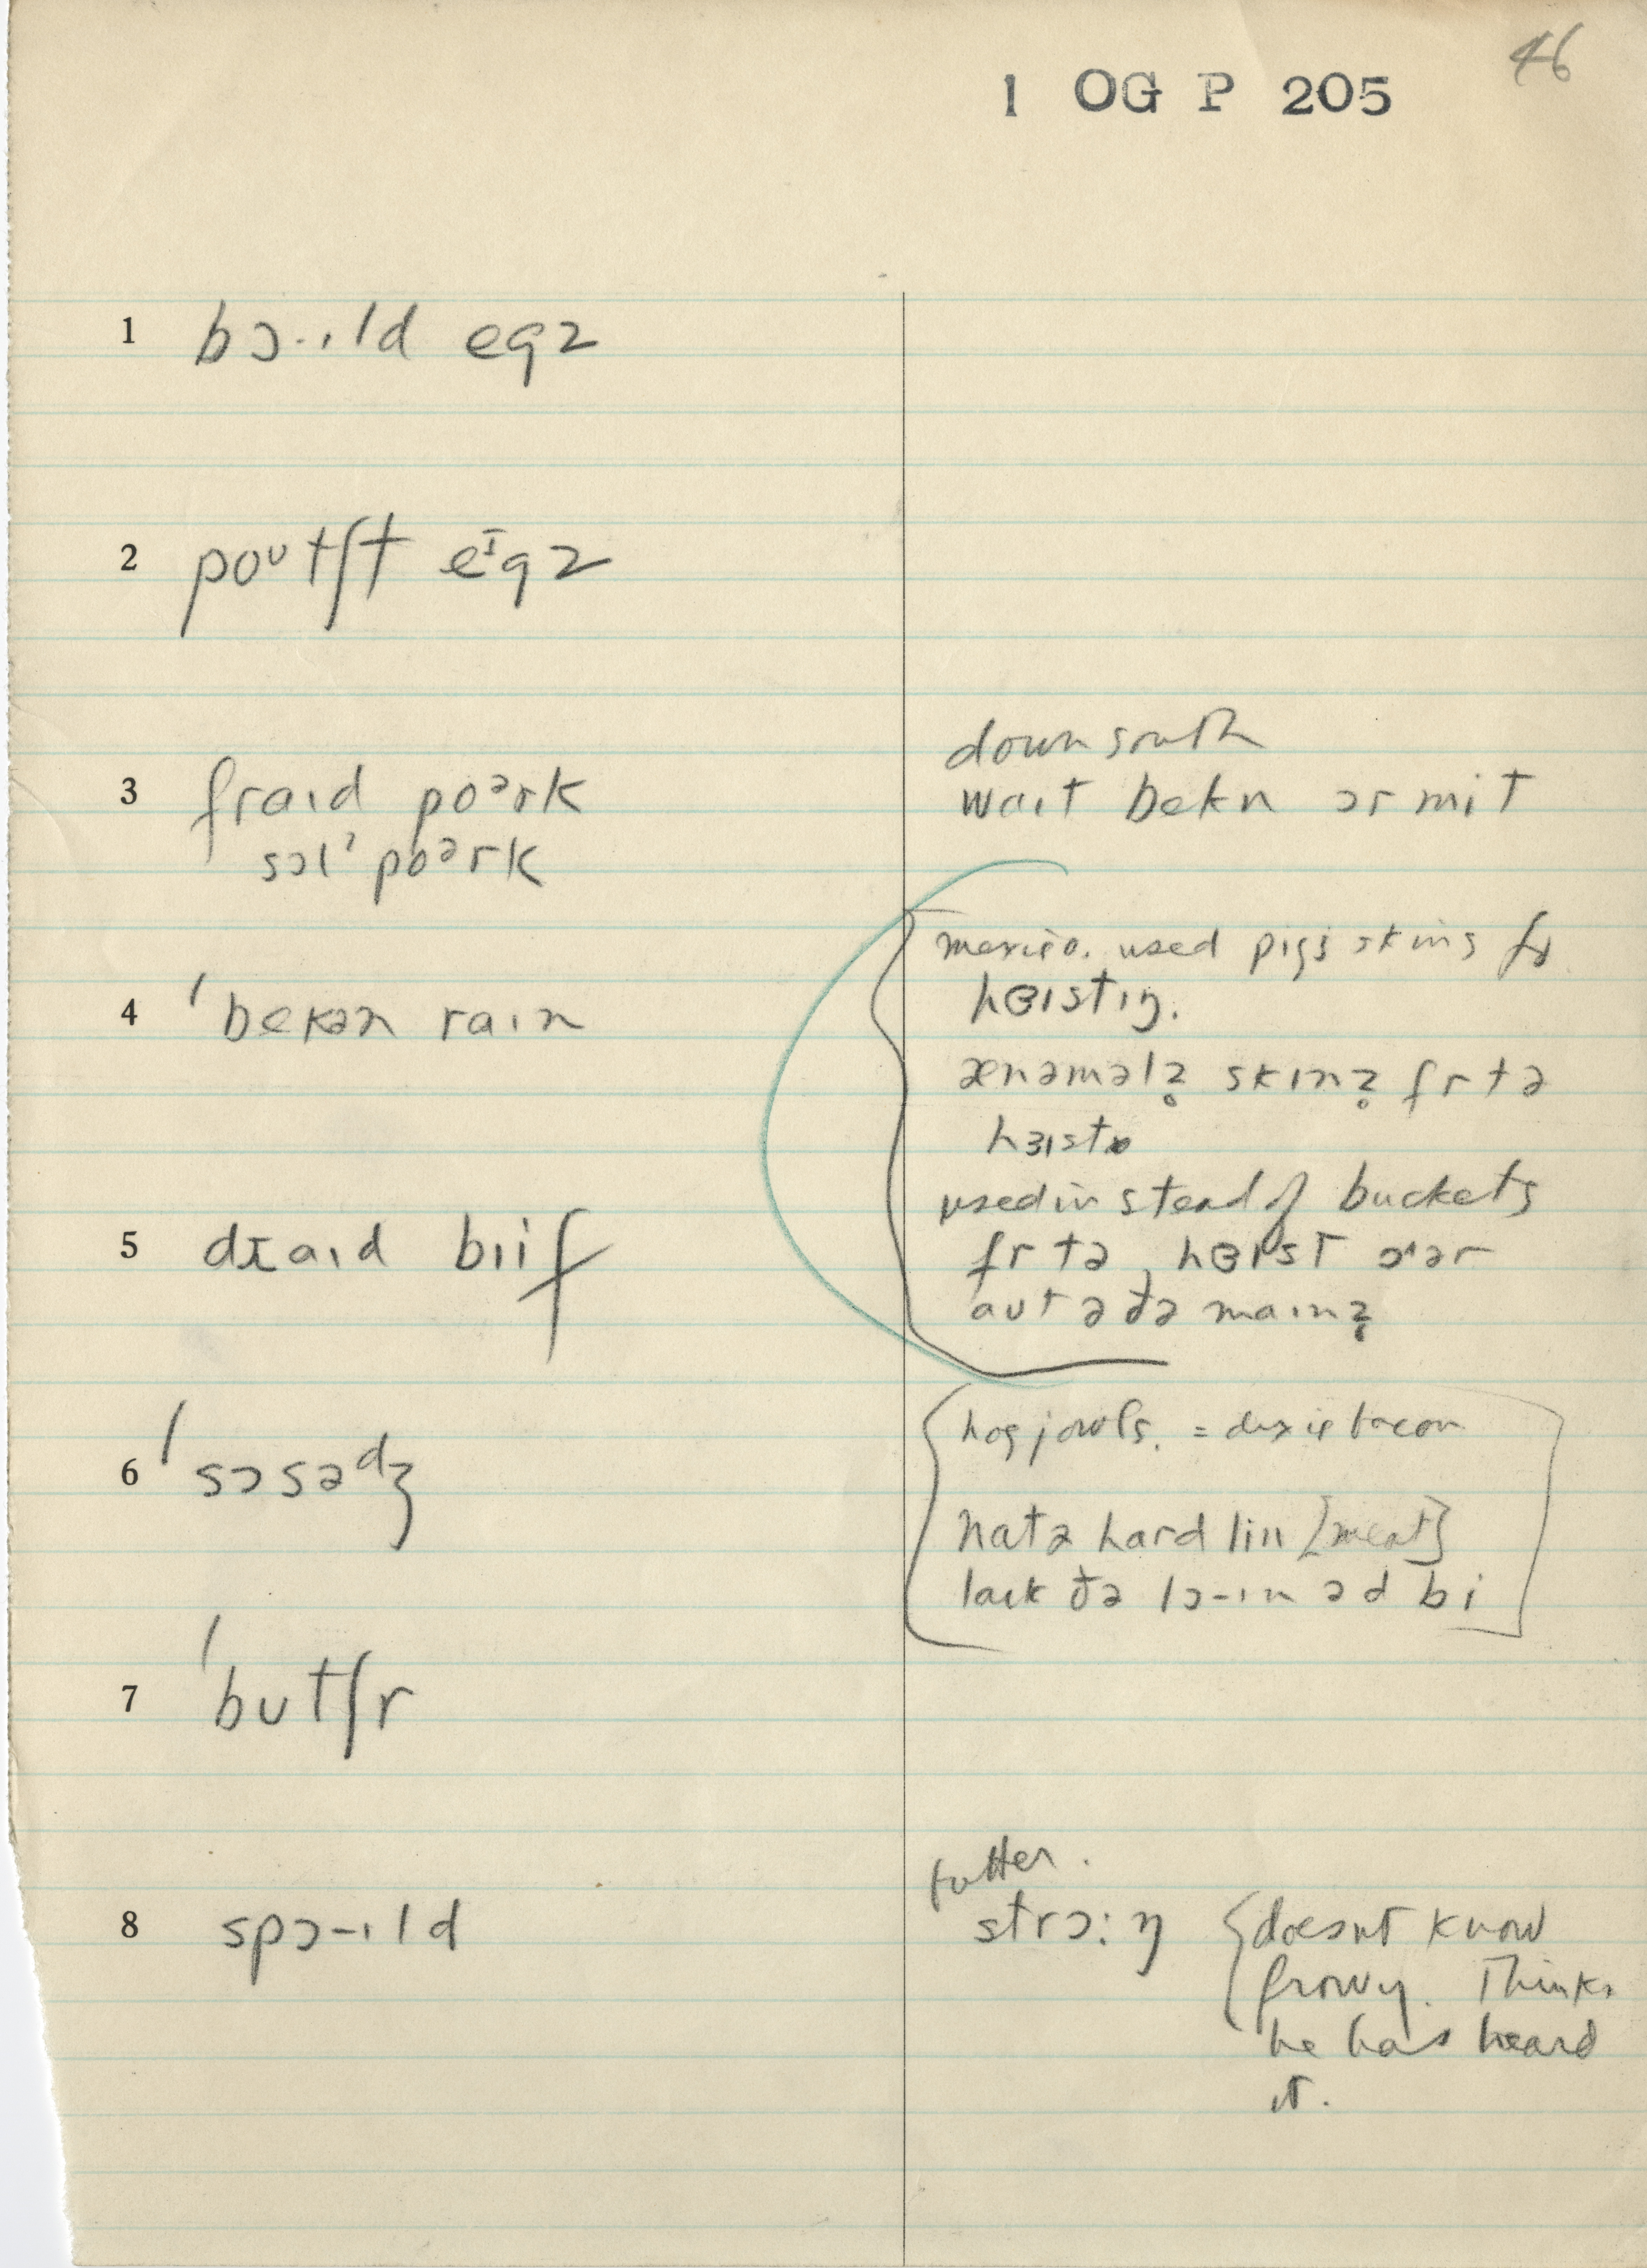 46
1 OG P 205
1 bɔ-ɪld egz
2 poᶷtʃt eᴵgz
3 fraɪd poᵊrk
sɔlˀ poᵊrk
down south
waɪt bekn ɔr mit
4 ˈbekən raɪn
mexico. used pigs skins fr
hɜɪstɪŋ.
ænəməlz̥ skɪnz̥ fr tə
hɜɪst
used instead of buckets
fr tə hɜɪst ɔər
aut ə ðə maɪnz̥
5 draɪd biif
6 ˈsɔsədʒ
hog jowls. = dixie bacon
natə hard lin [meat]
laɪk ðə lɔ-ɪn əd bi
7 ˈbutʃr
8 spɔ-ɪld
butter.
strɔ:ŋ
doesnt know
frowy. Thinks
he has heard
it.